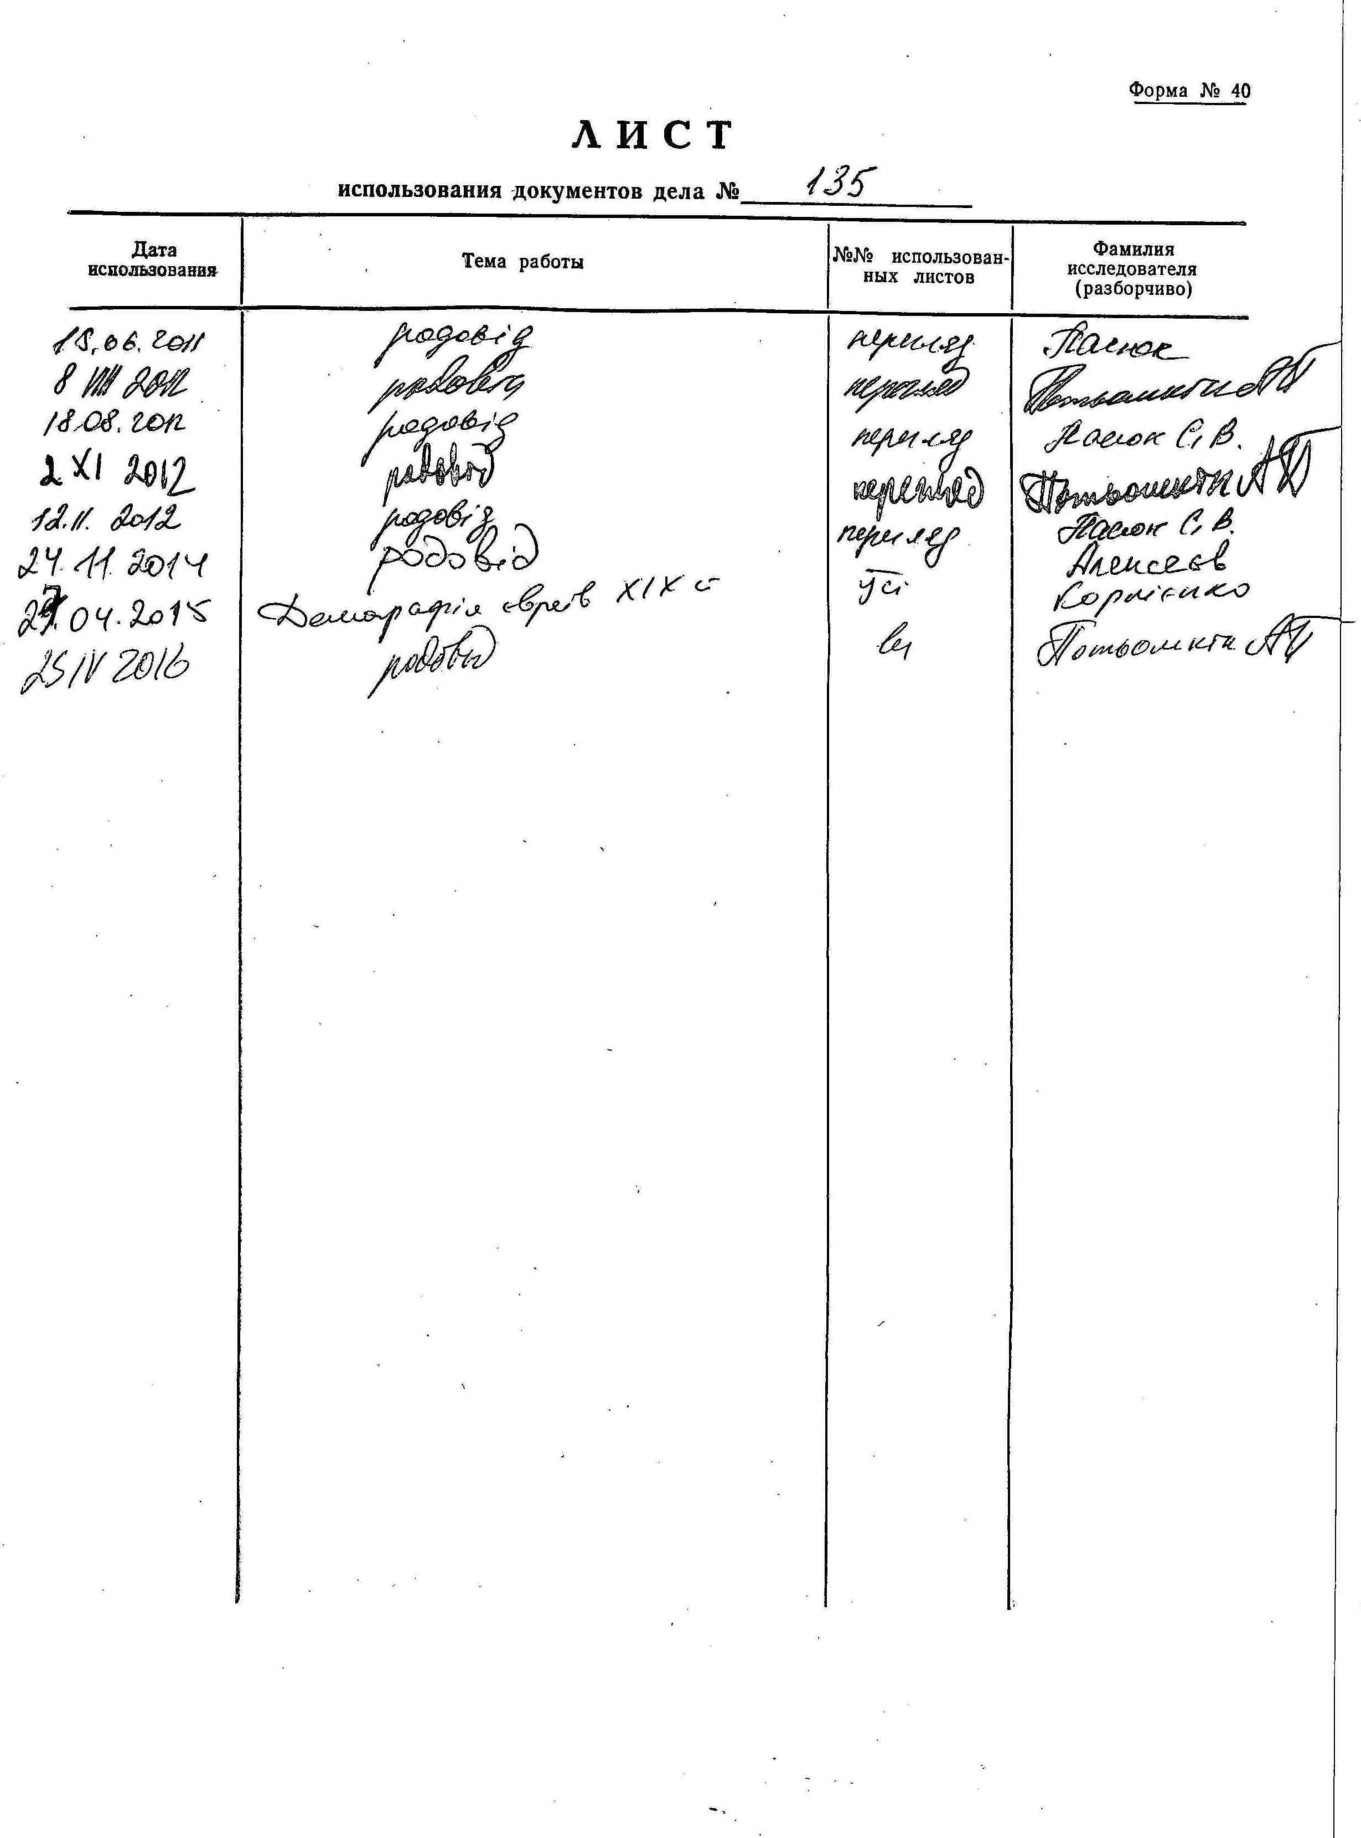 Форма № 40
ЛИСТ
использования документов дела № 135
Дата использования
Тема работы
№№ использованных листов
Фамилия исследователя (разборчиво)
15.06.2011 родовід перегляд Пасюк
8 VIII 2012 родовід перегляд Потьомкін АП
18.08.2012 родовід перегляд Пасюк С.В.
2 XI 2012 родовід перегляд Потьомкін АП
12.11.2012 родовід перегляд Пасюк С.В.
24.11.2014 родовід Усі Алексеєв
27.04.2015 Демографія євреїв XIX ст Корнієнко
25 IV 2016 родовід всі Потьомкін АП